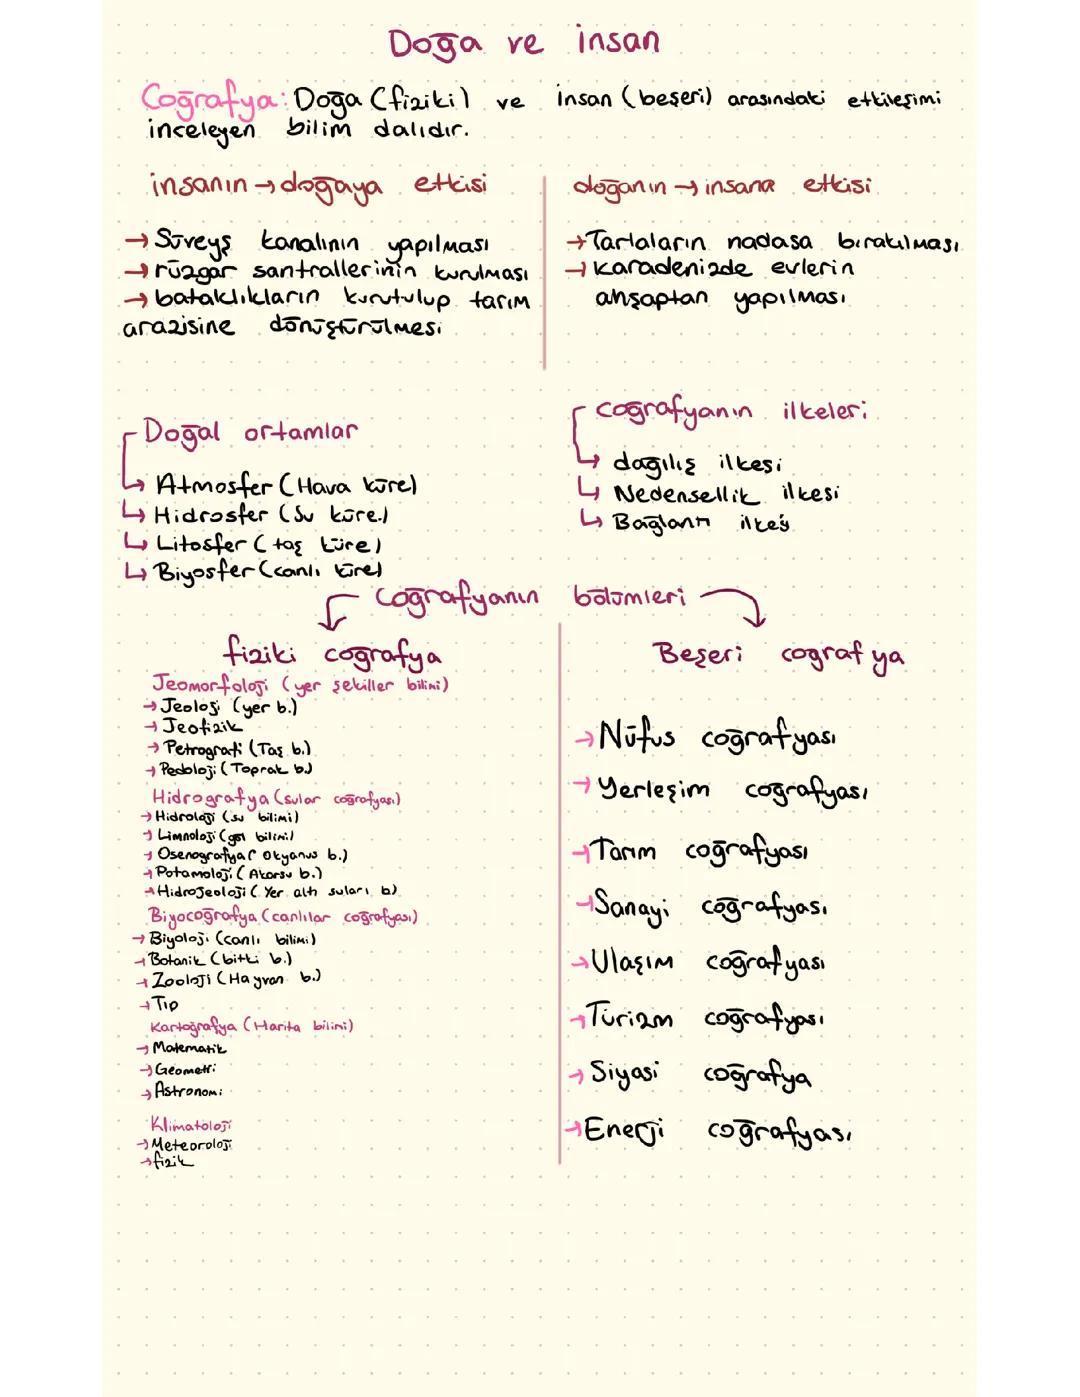 Doğa ve insan
Coğrafya: Doğa (fiziki) ve insan (beşeri) arasındaki etkileşimi
inceleyen bilim dalıdır.
insanın → doğaya etkisi
→ Süveyş kanalının yapılması
→ rüzgar santrallerinin kurulması
→ bataklıkların kurutulup tarım
arazisine dönüştürülmesi
doğanın → insana etkisi
→ Tarlaların nadasa bırakılması
→ karadenizde evlerin
ahşaptan yapılması
Doğal ortamlar
↳ Atmosfer (Hava küre)
↳ Hidrosfer (Su küre)
↳ Litosfer (taş küre)
↳ Biyosfer (canlı küre)
coğrafyanın ilkeleri
↳ dağılış ilkesi
↳ Nedensellik ilkesi
↳ Bağlantı ilkesi
Coğrafyanın bölümleri
fiziki coğrafya
Jeomorfoloji (yer şekiller bilimi)
→ Jeoloji (yer b.)
→ Jeofizik
→ Petrografi (Taş b.)
→ Pedoloji (Toprak b.)
Hidrografya (sular coğrafyası)
→ Hidroloji (su bilimi)
→ Limnoloji (göl bilimi)
→ Osenografya (Okyanus b.)
→ Potamoloji (Akarsu b.)
→ Hidrojeoloji (Yer altı suları b)
Biyocoğrafya (canlılar coğrafyası)
→ Biyoloji (canlı bilimi)
→ Botanik (bitki b.)
→ Zooloji (Hayvan b.)
→ Tıp
Kartoğrafya (Harita bilimi)
→ Matematik
→ Geometri
→ Astronomi
Klimatoloji
→ Meteoroloji
→ fizik
Beşeri coğrafya
→ Nüfus coğrafyası
→ Yerleşim coğrafyası
→ Tarım coğrafyası
→ Sanayi coğrafyası
→ Ulaşım coğrafyası
→ Turizm coğrafyası
→ Siyasi coğrafya
→ Enerji coğrafyası